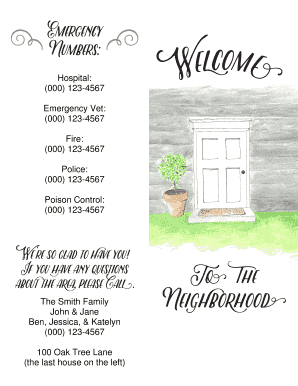 Emergency
Numbers:
Hospital:
(000) 123-4567
Emergency Vet:
(000) 123-4567
Fire:
(000) 123-4567
Police:
(000) 123-4567
Poison Control:
(000) 123-4567
We're so glad to have you!
If you have any questions
about the area, please call.
The Smith Family
John & Jane
Ben, Jessica, & Katelyn
(000) 123-4567
100 Oak Tree Lane
(the last house on the left)
Welcome
To the
Neighborhood